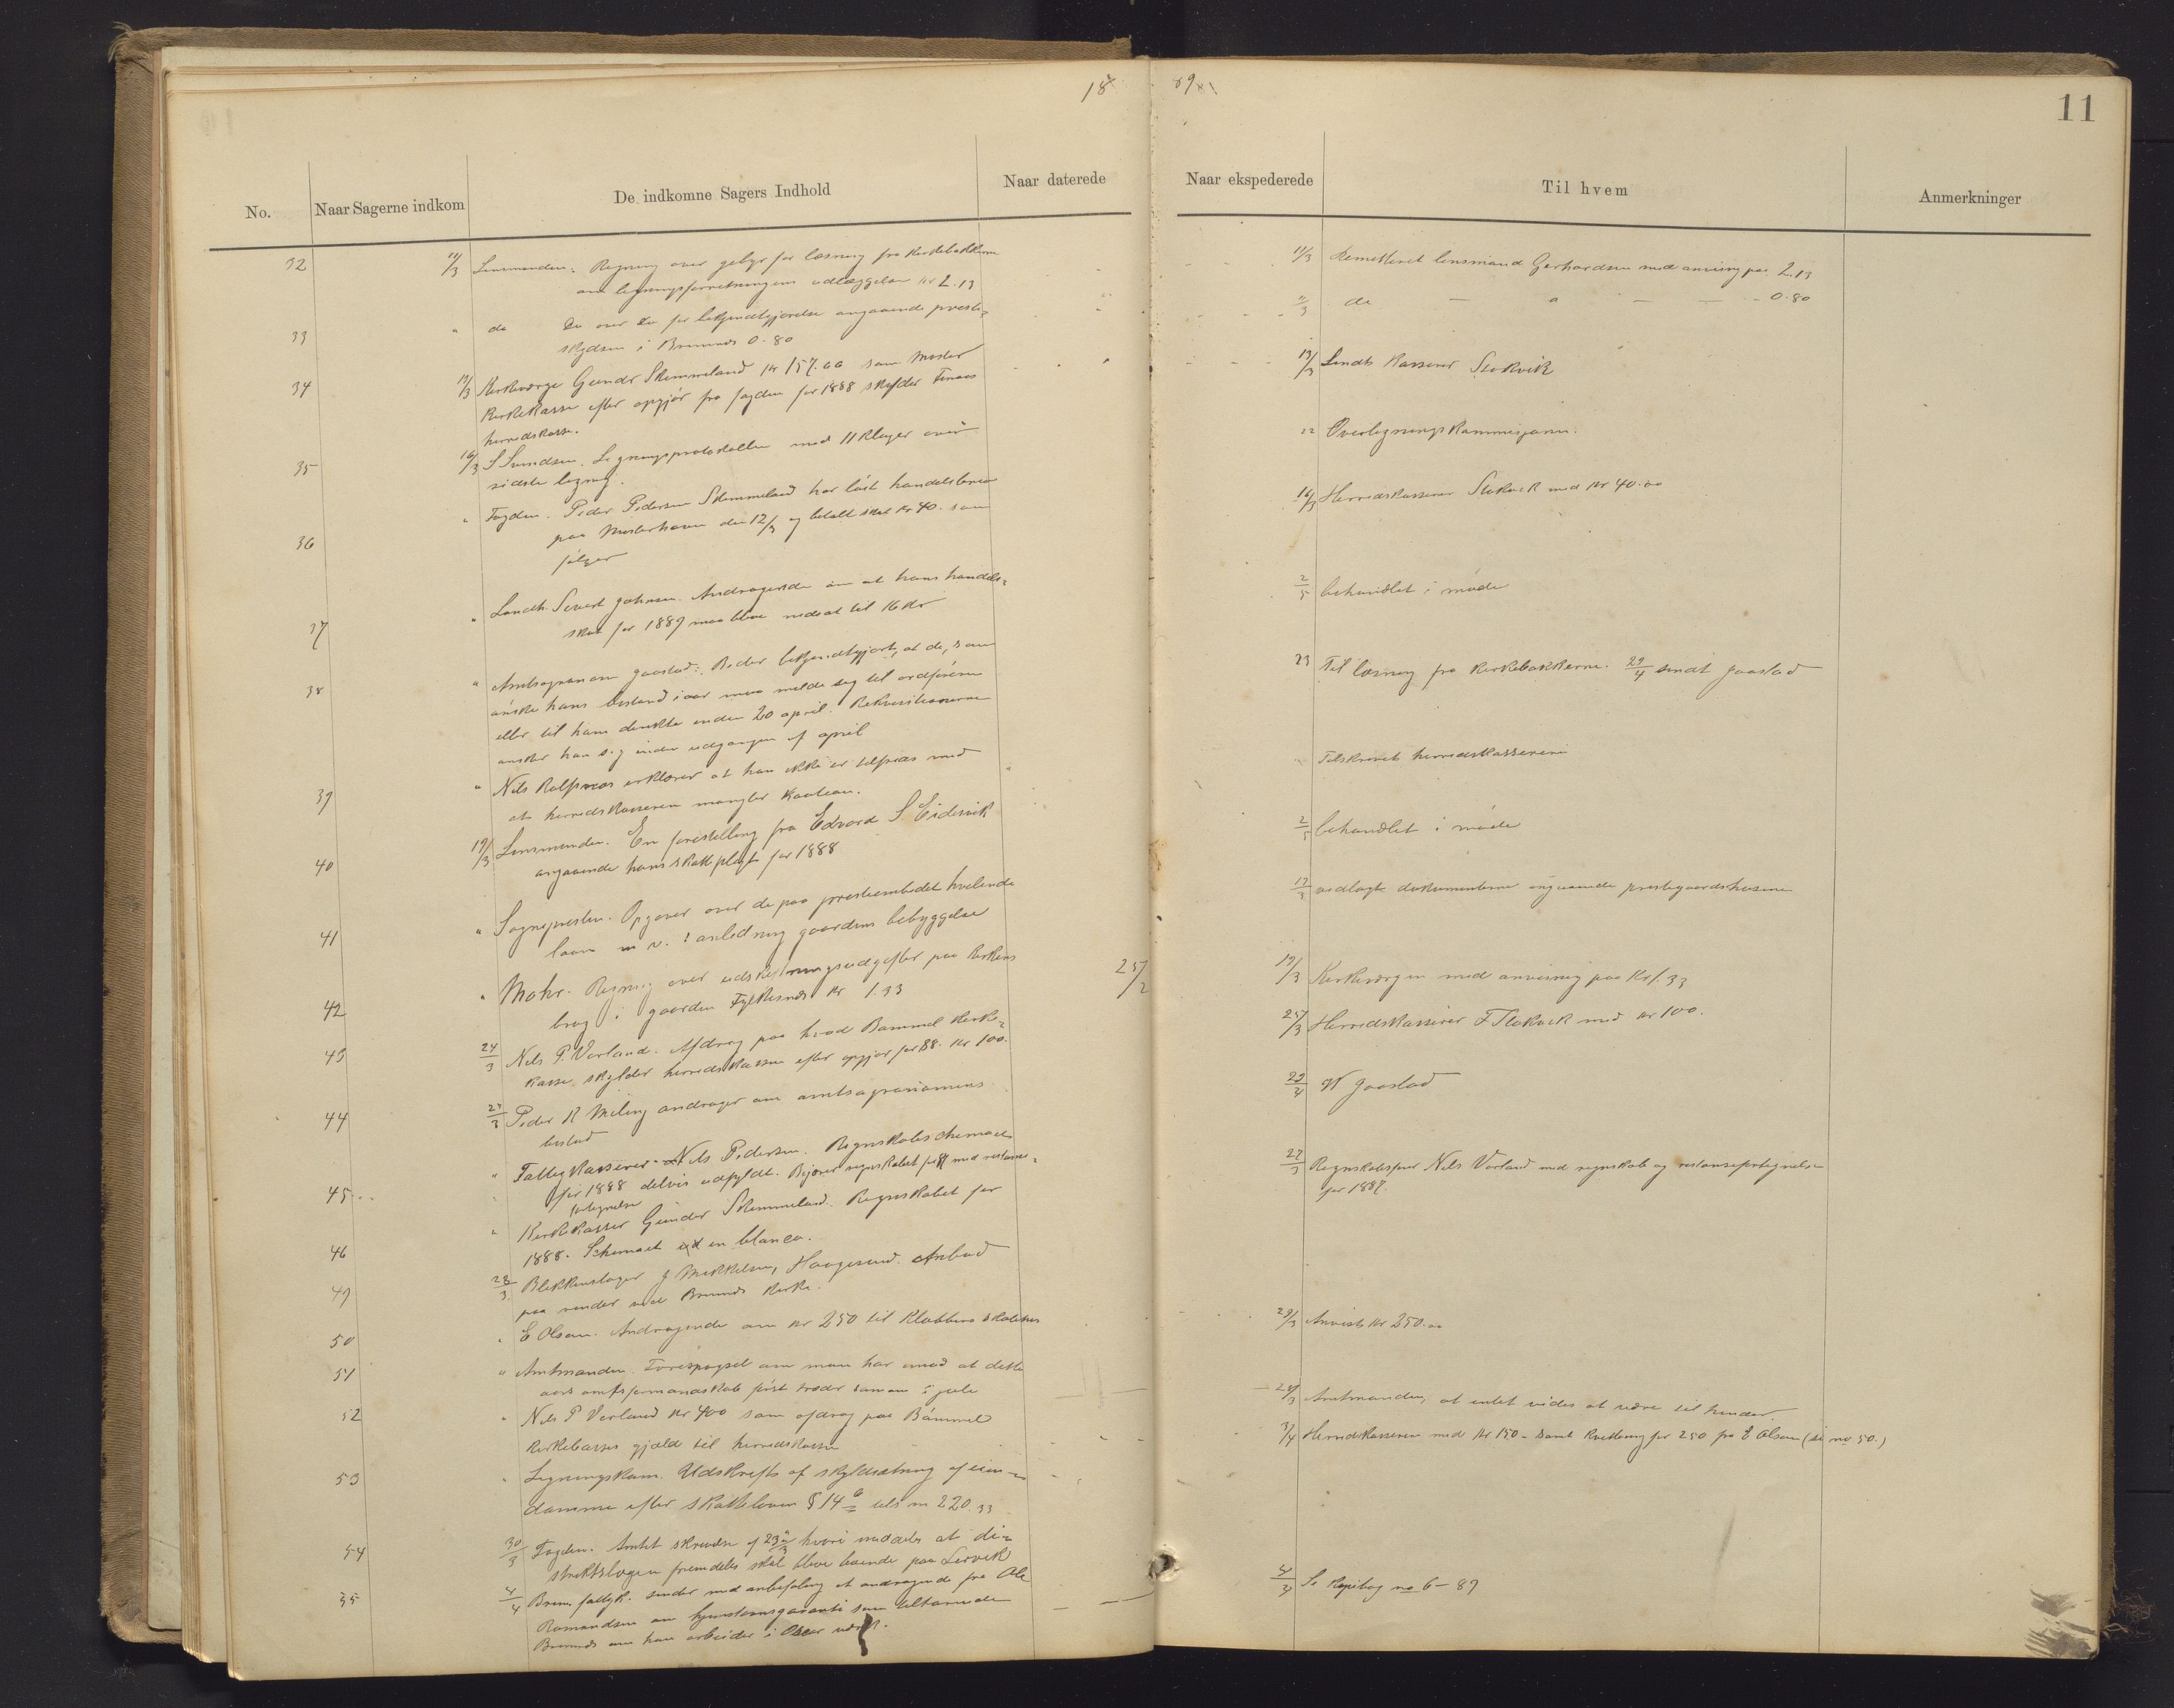 18 89
11
No. Naar Sagerne indkom De indkomne Sagers Indhold Naar daterede Naar ekspederede Til hvem Anmerkninger
32 11/3 Lensmanden. Regning over gebyr for læsning fra kirkebakkene
om ligningsforretningens udlæggelse kr 2.13
11/3 Remitteret lensmand Gerhardsen med anvisning paa 2.13
33 " do Do over do for bekjendtgjørelse angaaende preste=
skydsen i Bremnes 0.80
11/3 do — " — — 0.80
34 13/3 Kirkeværge Gunder Skimmeland kr 157.00 som Moster
Kirkekasse efter opgjør fra fogden for 1888 skylder Finaas
herredskasse.
13/3 Sendt kasserer Stokvik
35 16/3 S Svendsen. Ligningsprotokollen med 11 klager over
sidste ligning.
22 Overligningskommisjonen.
36 " Fogden. Peder Pedersen Skimmeland har løst handelsbrev
paa Mosterhavn den 12/3 og betalt skat kr 40. som
følger
16/3 Herredskasserer Stokvik med kr 40.00
37 " Landh. Sivert Johnsen. Andragende om at hans handels=
skat for 1889 maa blive nedsat til 16 kr
2/5 behandlet i møde
38 " Amtsagronom Gaastad: Beder bekjendtgjort, at de, som
ønske hans bistand iaar maa melde sig til ordføreren
eller til ham direkte inden 20 april. Rekvisitionerne
ønsker han sig inden udgangen af april
23 Til læsning fra kirkebakkerne. 29/4 sendt Gaastad
39 " Nils Rolfsnes erklærer at han ikke er tilfreds med
at herredskassereren mangler kaution.
Tilskrevet herredskassereren
40 19/3 Lensmanden. En forestilling fra Edvard S Eidesvik
angaaende hans skatteplygt for 1888
2/5 behandlet i møde
41 " Sognepresten. Opgaver over de paa presteembedet hvilende
laan m v. i anledning gaardens bebyggelse
17/3 vedlagte dokumenterne angaaende prestegaardshusene
42 " Mohr. Regning over udskiftningsudgifter paa kirkens
brug i gaarden Fylkesnes kr 1.33
25/2
19/3 Kirkeværgen med anvisning paa kr 1.33
43 24/3 Nils P. Vorland. Afdrag paa hvad Bømmel kirke=
kasse skylder herredskassen efter opgjør for 88. kr 100.
25/3 Herredskasserer F Stokvik med kr 100.
44 27/3 Peder K Meling andrager om amtsagronomens
bistand
29/4 N Gaastad
45 " Fattigkasserer Nils Pedersen. Regnskabsschemaet
for 1888 delvis udfyldt. Bijører regnskabet for 87 med restance=
fortegnelse
27/3 Regnskabsfører Nils Vorland med regnskab og restancefortegnelse
for 1887.
46 " Kirkekasser Gunder Skimmeland. Regnskabet for
1888. Schemaet in blanco.
49 28/3 Blikkenslager J Mikkelsen, Haugesund. Anbud
paa render ved Bremnes kirke.
50 " E Olsen. Andragende om kr 250 til Klubbens skolehus
29/3 Anvist kr 250.00
51 " Amtmanden. Forespørgsel om man har imod at dette
aars amtsformandskab først træder sammen i juli
28/3 Amtmanden, at intet vides at være til hinder.
52 " Nils P Vorland kr 400 som afdrag paa Bømmel
kirkekasses gjæld til herredskassen
3/4 Herredskassereren med kr 150 – samt kvittering for 250 fra E Olsen (se no 50.)
53 " Ligningskom. Udskrift af skyldsætning af eien=
domme efter skatteloven § 14 6 tils m 220.33
54 30/3 Fogden. Amtet skrivelse af 23/3 hvori meddeles at di=
striktslægen fremdeles skal blive boende paa Lervik
35 4/4 Brem. fattigk. sender med anbefaling et andragende fra Ole
Romundsen om hjemstavnsgaranti som tilhørende
Bremnes om han arbeider i Oscar værk.
4/4 Se Kopibog no 6 – 89